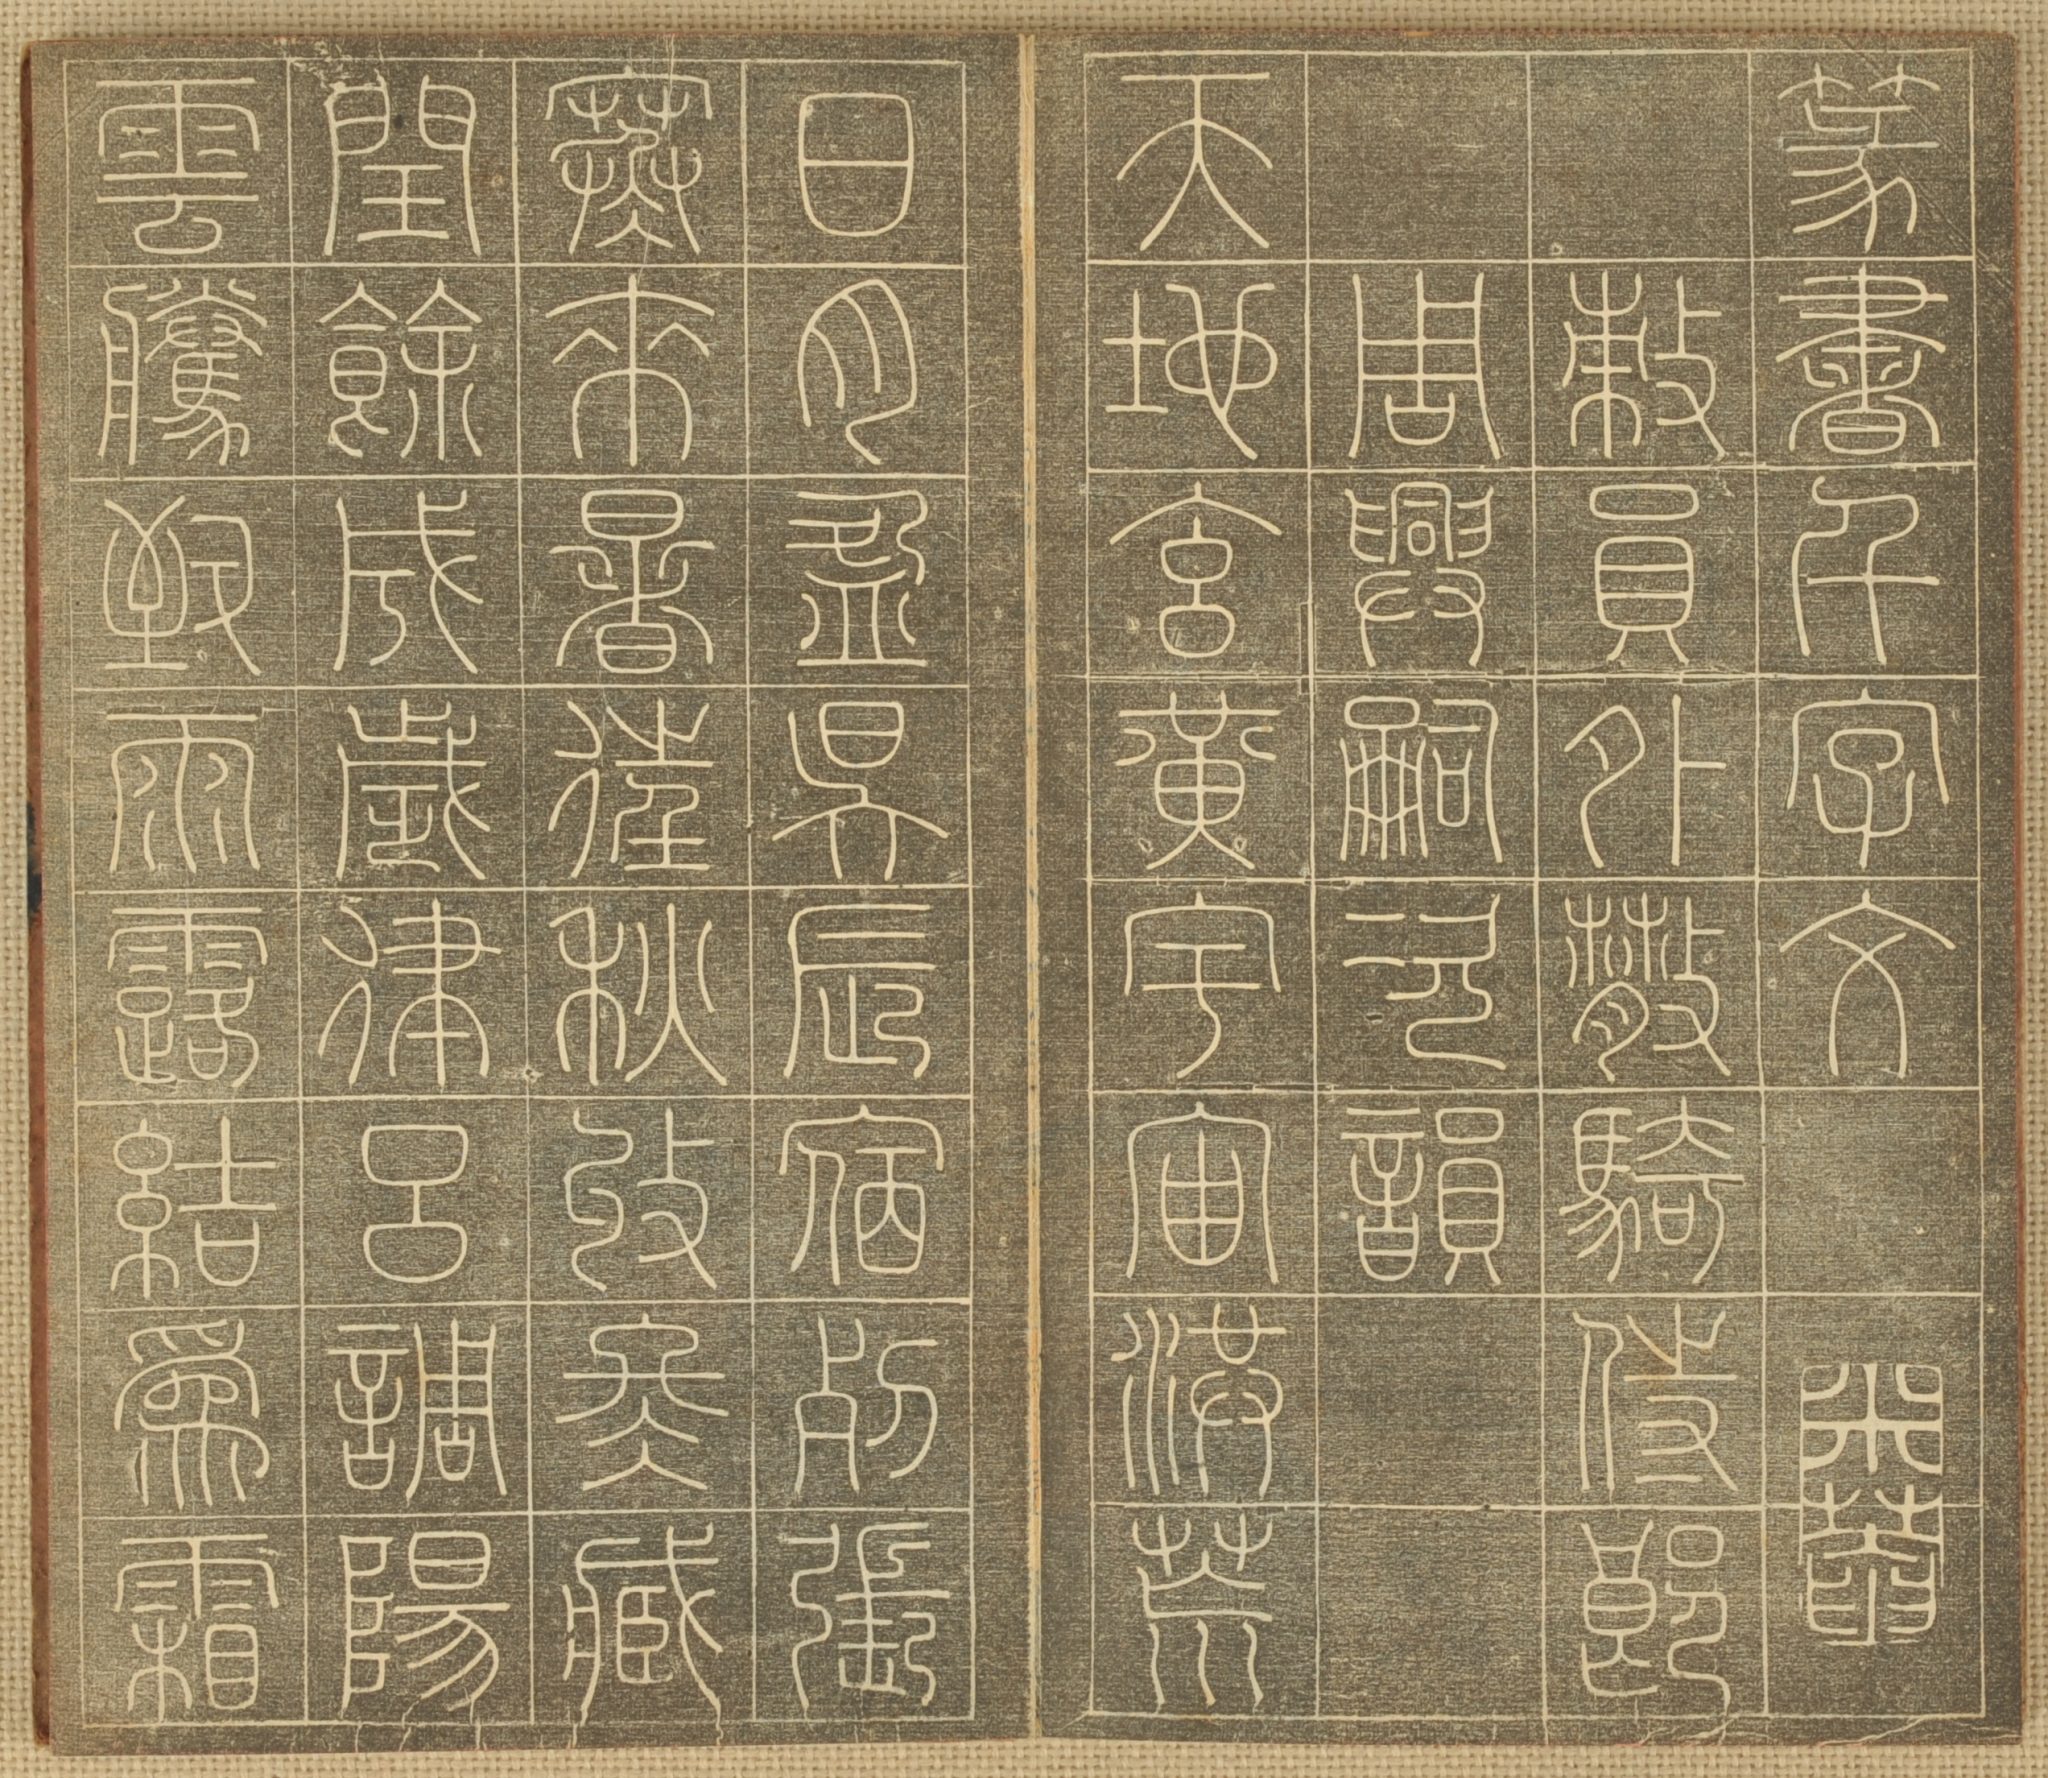 篆書千字文
米芾
敕員外散騎侍郎
周興嗣次韻
天地玄黃宇宙洪荒
日月盈昃辰宿列張
寒來暑往秋收冬藏
閏餘成歲律呂調陽
雲騰致雨露結爲霜